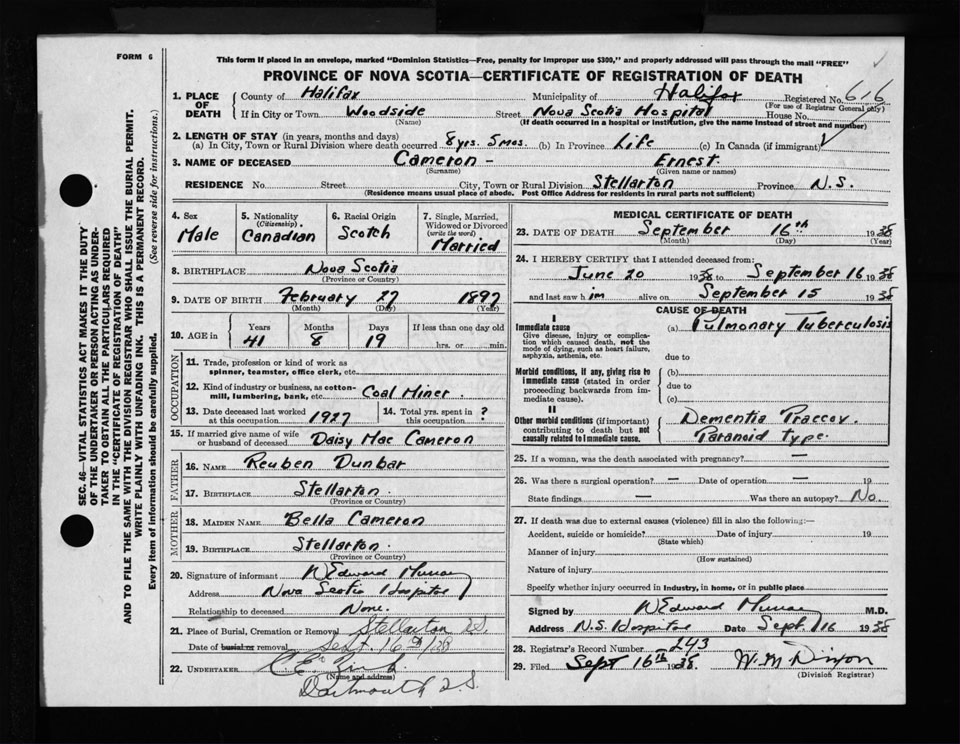 FORM 6
This form if placed in an envelope, marked "Dominion Statistics—Free, penalty for improper use $300," and properly addressed will pass through the mail "FREE"
PROVINCE OF NOVA SCOTIA—CERTIFICATE OF REGISTRATION OF DEATH
SEC. 46—VITAL STATISTICS ACT MAKES IT THE DUTY
OF THE UNDERTAKER OR PERSON ACTING AS UNDER-
TAKER TO OBTAIN ALL THE PARTICULARS REQUIRED
IN THE "CERTIFICATE OF REGISTRATION OF DEATH"
AND TO FILE THE SAME WITH THE DIVISION REGISTRAR WHO SHALL ISSUE THE BURIAL PERMIT.
WRITE PLAINLY WITH UNFADING INK. THIS IS A PERMANENT RECORD.
Every item of information should be carefully supplied. (See reverse side for instructions.)
1. PLACE OF DEATH County of Halifax Municipality of Halifax Registered No. 616
(For use of Registrar General only)
If in City or Town Woodside Street Nova Scotia Hospital House No.
(Name) (If death occurred in a hospital or institution, give the name instead of street and number)
2. LENGTH OF STAY (in years, months and days)
(a) In City, Town or Rural Division where death occurred 8 yrs. 5 mos. (b) In Province Life (c) In Canada (if immigrant)
3. NAME OF DECEASED Cameron - Ernest
(Surname) (Given name or names)
RESIDENCE No. Street City, Town or Rural Division Stellarton Province N.S.
(Residence means usual place of abode. Post Office Address for residents in rural parts not sufficient)
4. Sex Male
5. Nationality (Citizenship) Canadian
6. Racial Origin Scotch
7. Single, Married, Widowed or Divorced (write the word) Married
8. BIRTHPLACE Nova Scotia
(Province or Country)
9. DATE OF BIRTH February 27 1897
(Month) (Day) (Year)
10. AGE in Years Months Days If less than one day old
41 8 19 hrs. or min.
OCCUPATION
11. Trade, profession or kind of work as spinner, teamster, office clerk, etc.
12. Kind of industry or business, as cotton-mill, lumbering, bank, etc. Coal Miner
13. Date deceased last worked at this occupation 1927
14. Total yrs. spent in this occupation ?
15. If married give name of wife or husband of deceased Daisy Mae Cameron
FATHER
16. NAME Reuben Dunbar
17. BIRTHPLACE Stellarton
(Province or Country)
MOTHER
18. MAIDEN NAME Bella Cameron
19. BIRTHPLACE Stellarton
(Province or Country)
20. Signature of informant W Edward Murray
Address Nova Scotia Hospital
Relationship to deceased None.
21. Place of Burial, Cremation or Removal Stellarton N.S.
Date of burial or removal Sept. 16th/38
22. UNDERTAKER C.E.
(Name and address)
Dartmouth N.S.
MEDICAL CERTIFICATE OF DEATH
23. DATE OF DEATH September 16th 1938
(Month) (Day) (Year)
24. I HEREBY CERTIFY that I attended deceased from:
June 20 1938 to September 16 1938
and last saw him alive on September 15 1938
CAUSE OF DEATH
I
Immediate cause
Give disease, injury or complication which caused death, not the mode of dying, such as heart failure, asphyxia, asthenia, etc.
(a) Pulmonary Tuberculosis
due to
Morbid conditions, if any, giving rise to immediate cause (stated in order proceeding backwards from immediate cause).
(b)
due to
(c)
II
Other morbid conditions (if important) contributing to death but not causally related to immediate cause.
Dementia Praecox
Paranoid Type.
25. If a woman, was the death associated with pregnancy? —
26. Was there a surgical operation? — Date of operation — 19
State findings — Was there an autopsy? No.
27. If death was due to external causes (violence) fill in also the following:—
Accident, suicide or homicide? Date of injury 19
(State which)
Manner of injury
(How sustained)
Nature of injury
Specify whether injury occurred in industry, in home, or in public place
Signed by W Edward Murray M.D.
Address N.S. Hospital Date Sept. 16 1938
28. Registrar's Record Number 243
29. Filed Sept 16th 1938. W. M. Dixon
(Division Registrar)